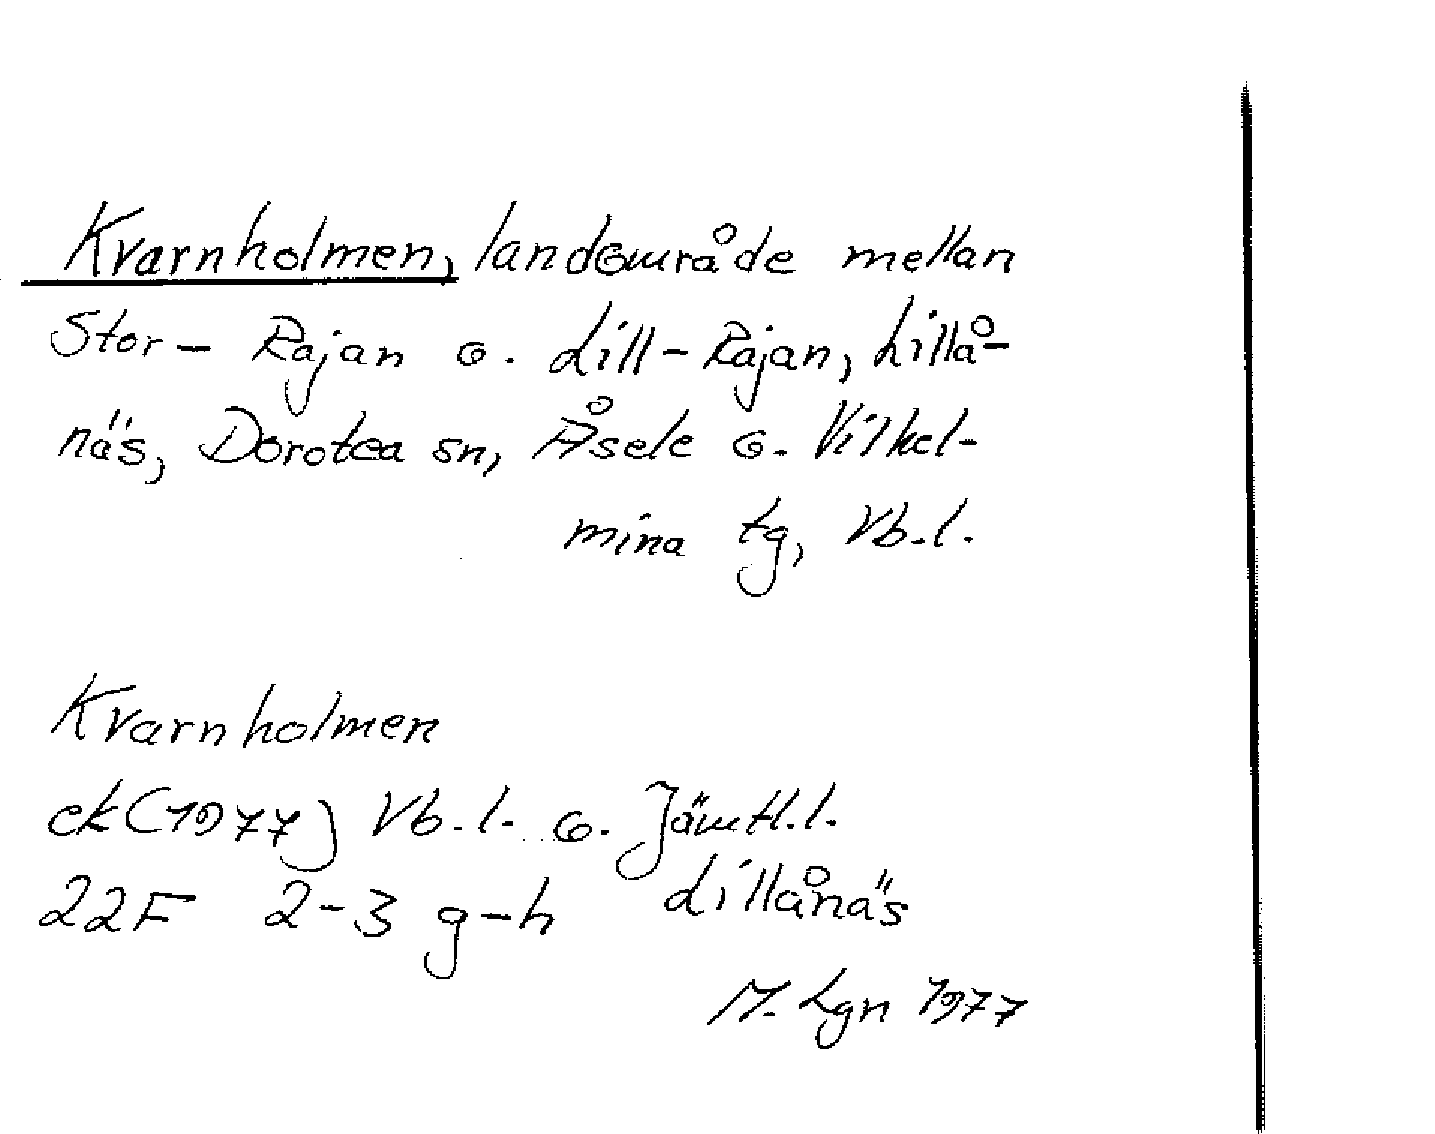 Kvarnholmen, landområde mellan
Stor-Rajan o. Lill-Rajan, Lillå-
näs, Dorotea sn, Åsele o. Vilhel-
mina tg, Vb.l.
Kvarnholmen
ek (1977) Vb.l. o. Jämtl.l.
22F 2-3 g-h Lillånäs
M. Lgn 1977